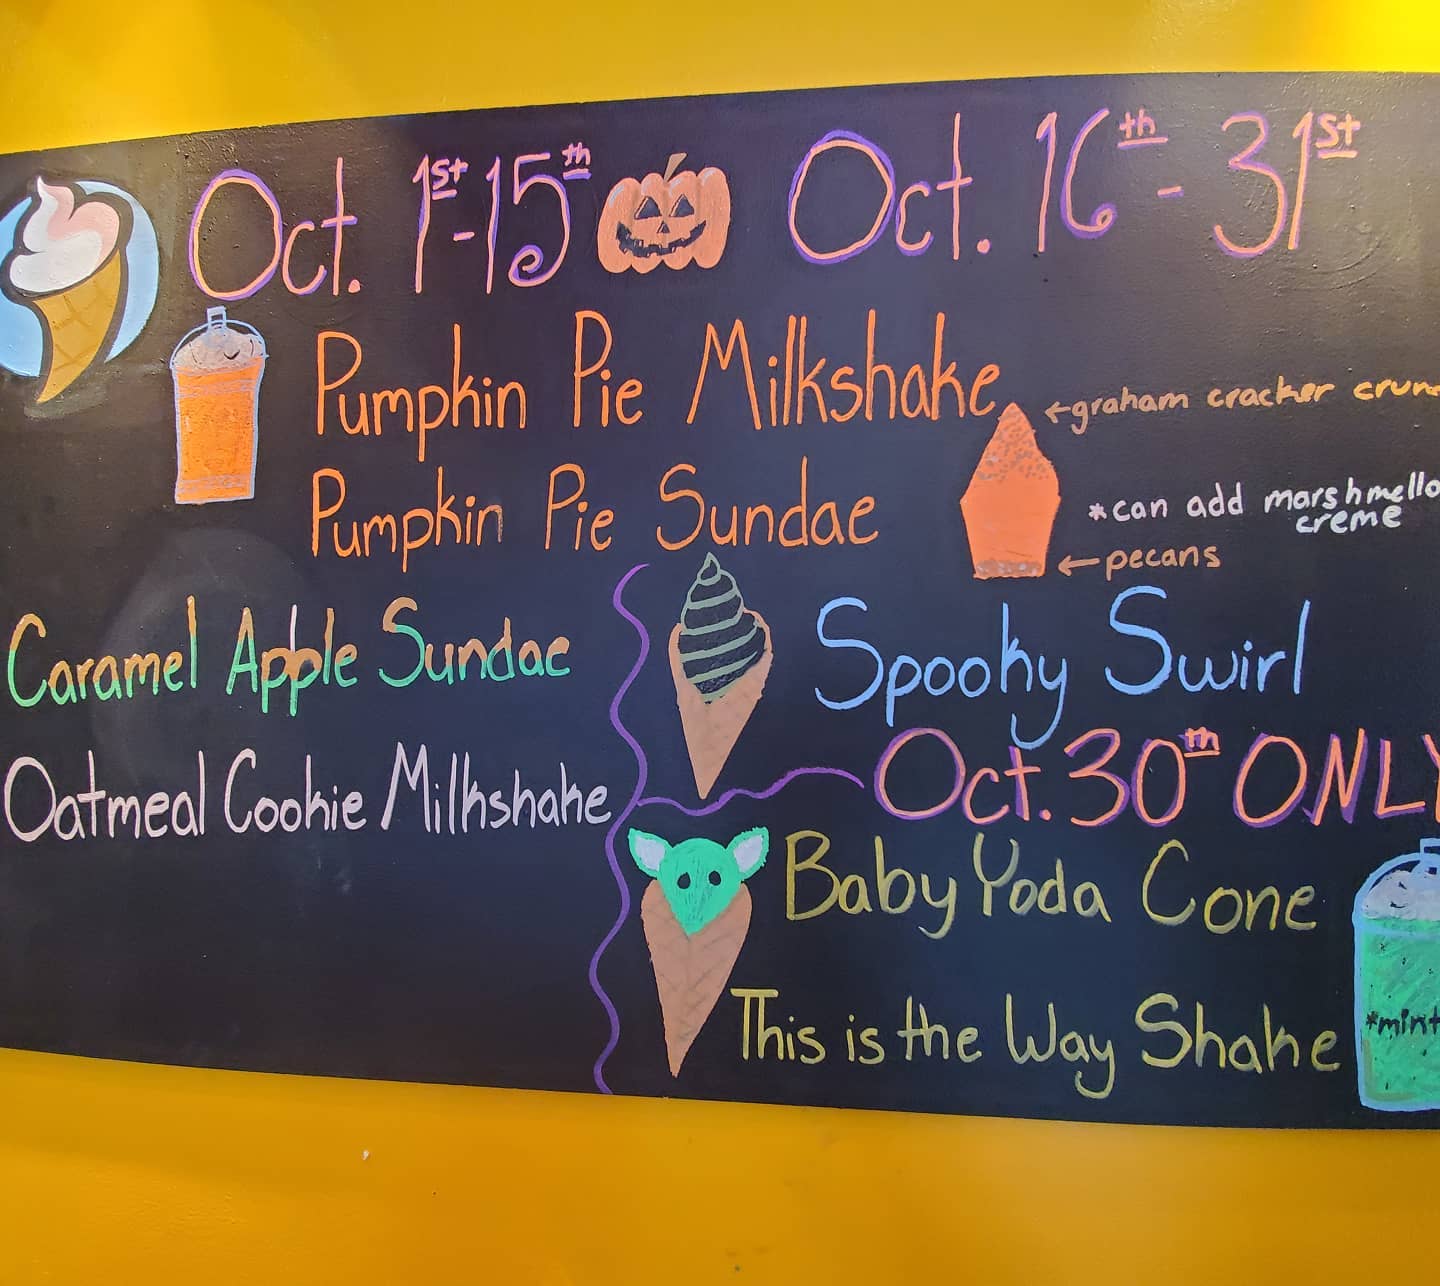 Oct. 1st-15th
Oct. 16th - 31st
Pumpkin Pie Milkshake
←graham cracker
Pumpkin Pie Sundae
*can add marshmello
creme
←pecans
Caramel Apple Sundae
Oatmeal Cookie Milkshake
Spooky Swirl
Oct. 30th ONLY
Baby Yoda Cone
This is the Way Shake
*mint